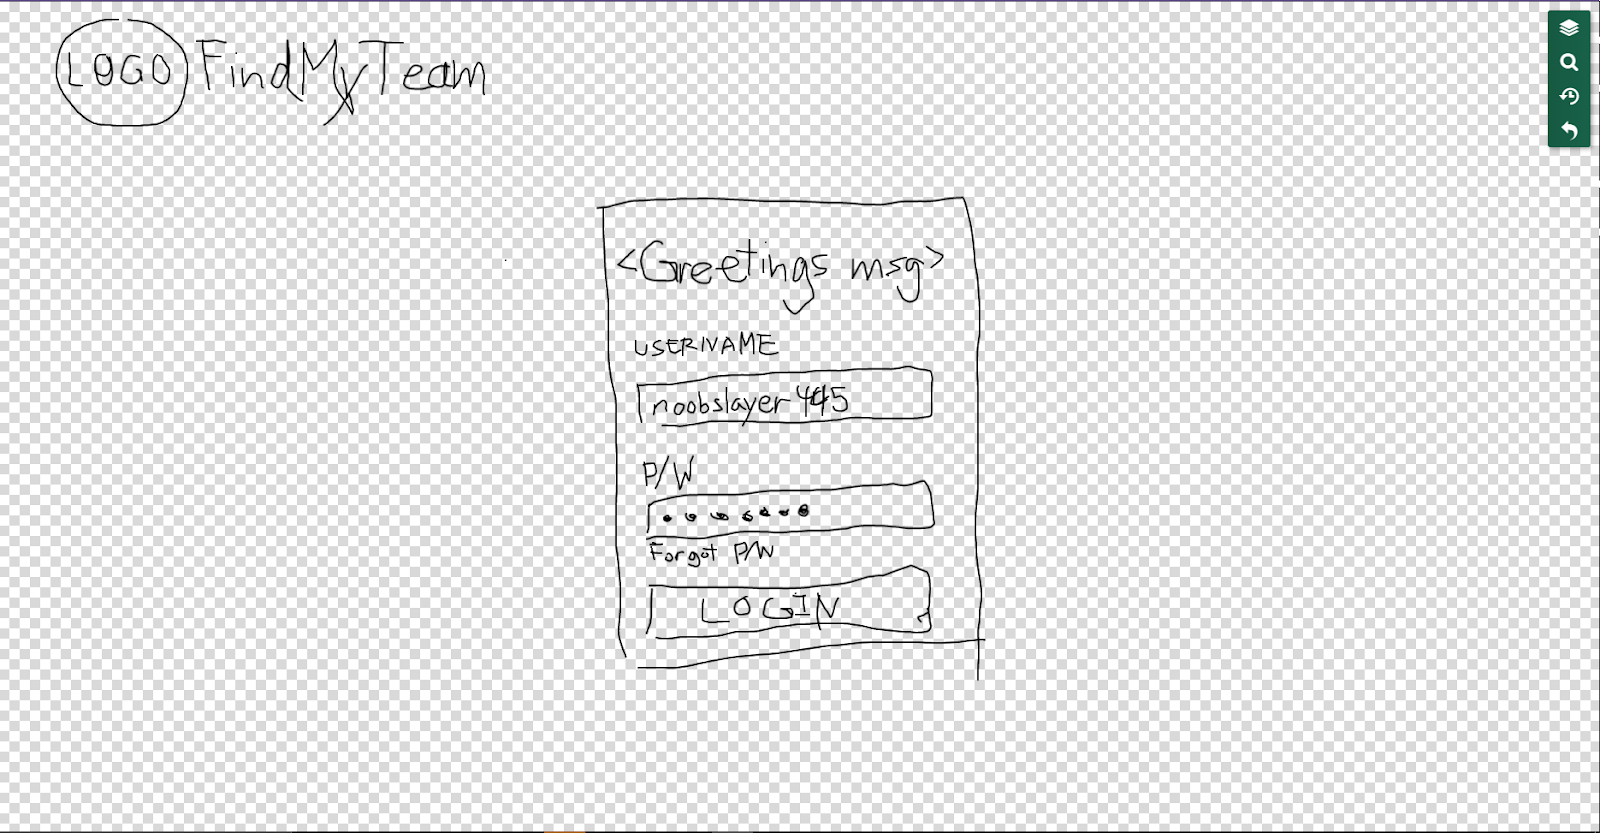 LOGO FindMyTeam
<Greetings msg>
USERNAME
noobslayer445
P/W
Forgot P/W
LOGIN